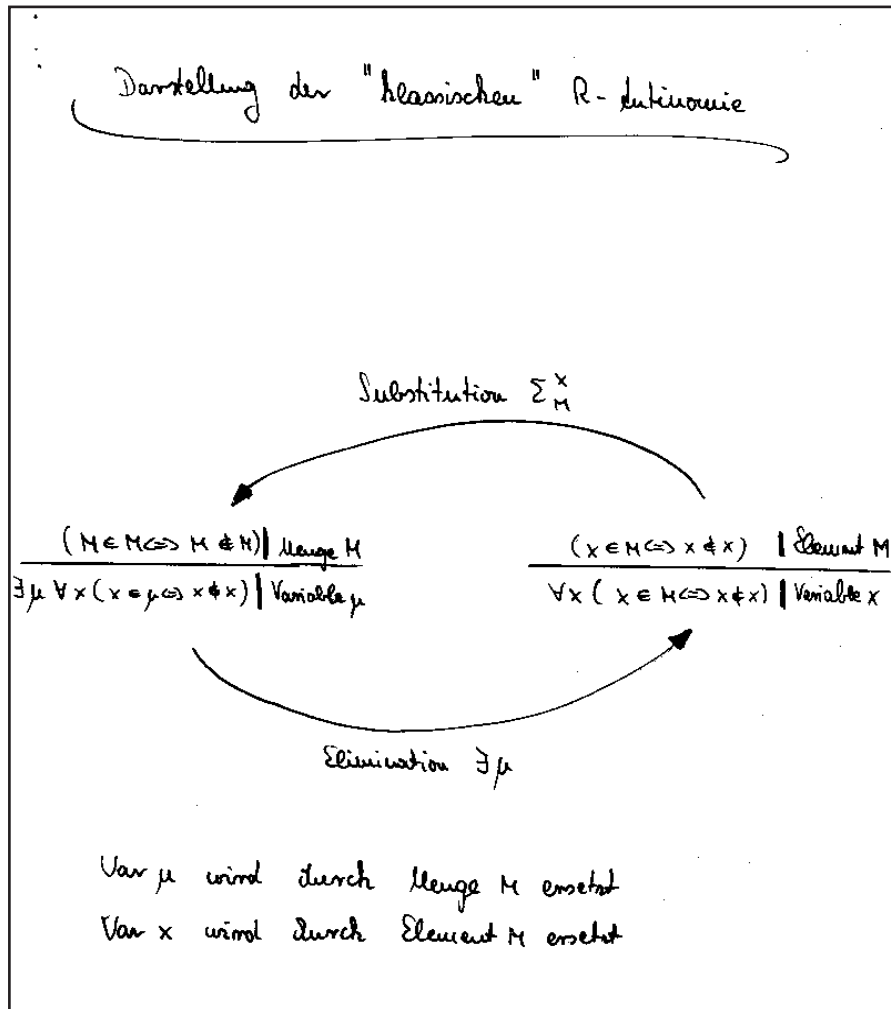 Darstellung der "klassischen" R-Antinomie
Substitution Σ x M
(M ∈ M ⇔ M ∉ M) | Menge M
∃μ ∀x (x ∈ μ ⇔ x ∉ x) | Variable μ
(x ∈ M ⇔ x ∉ x) | Element M
∀x (x ∈ M ⇔ x ∉ x) | Variable x
Elimination ∃μ
Var μ wird durch Menge M ersetzt
Var x wird durch Element M ersetzt